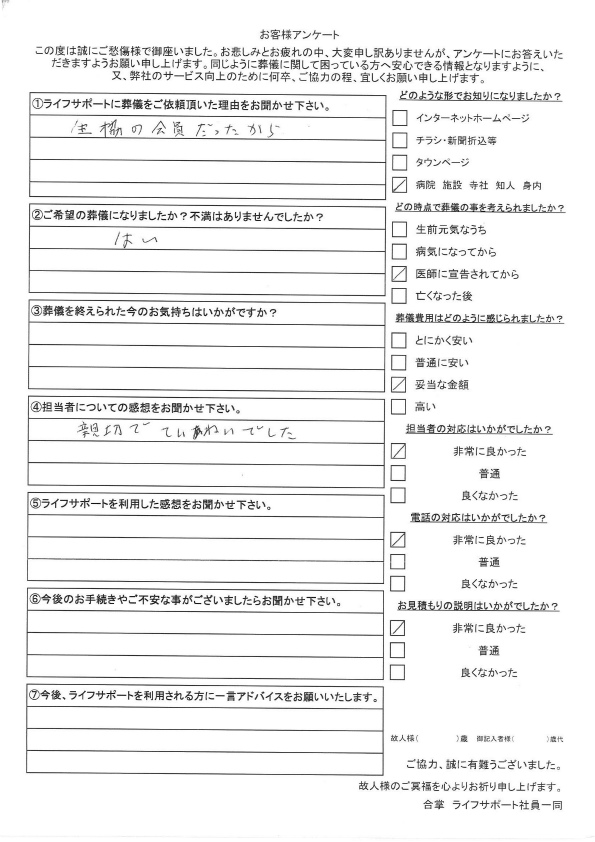 お客様アンケート
この度は誠にご愁傷様で御座いました。お悲しみとお疲れの中、大変申し訳ありませんが、アンケートにお答えいた
だきますようお願い申し上げます。同じように葬儀に関して困っている方へ安心できる情報となりますように、
又、弊社のサービス向上のために何卒、ご協力の程、宜しくお願い申し上げます。
①ライフサポートに葬儀をご依頼頂いた理由をお聞かせ下さい。
生協の会員だったから
②ご希望の葬儀になりましたか？不満はありませんでしたか？
はい
③葬儀を終えられた今のお気持ちはいかがですか？
④担当者についての感想をお聞かせ下さい。
親切で ていねいでした
⑤ライフサポートを利用した感想をお聞かせ下さい。
⑥今後のお手続きやご不安な事がございましたらお聞かせ下さい。
⑦今後、ライフサポートを利用される方に一言アドバイスをお願いいたします。
どのような形でお知りになりましたか？
インターネットホームページ
チラシ・新聞折込等
タウンページ
病院 施設 寺社 知人 身内
どの時点で葬儀の事を考えられましたか？
生前元気なうち
病気になってから
医師に宣告されてから
亡くなった後
葬儀費用はどのように感じられましたか？
とにかく安い
普通に安い
妥当な金額
高い
担当者の対応はいかがでしたか？
非常に良かった
普通
良くなかった
電話の対応はいかがでしたか？
非常に良かった
普通
良くなかった
お見積もりの説明はいかがでしたか？
非常に良かった
普通
良くなかった
故人様（　　　）歳 御記入者様（　　　）歳代
ご協力、誠に有難うございました。
故人様のご冥福を心よりお祈り申し上げます。
合掌 ライフサポート社員一同